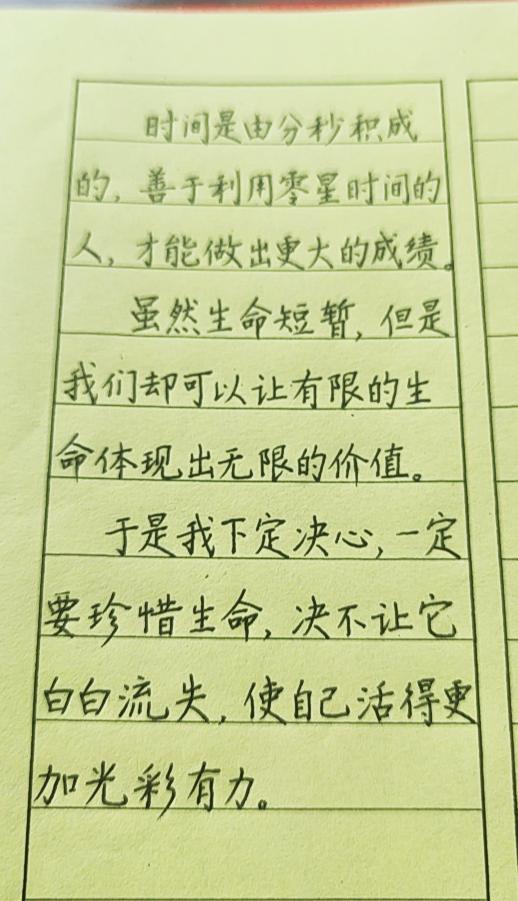 时间是由分秒积成
的，善于利用零星时间的
人，才能做出更大的成绩。
虽然生命短暂，但是
我们却可以让有限的生
命体现出无限的价值。
于是我下定决心，一定
要珍惜生命，决不让它
白白流失，使自己活得更
加光彩有力。